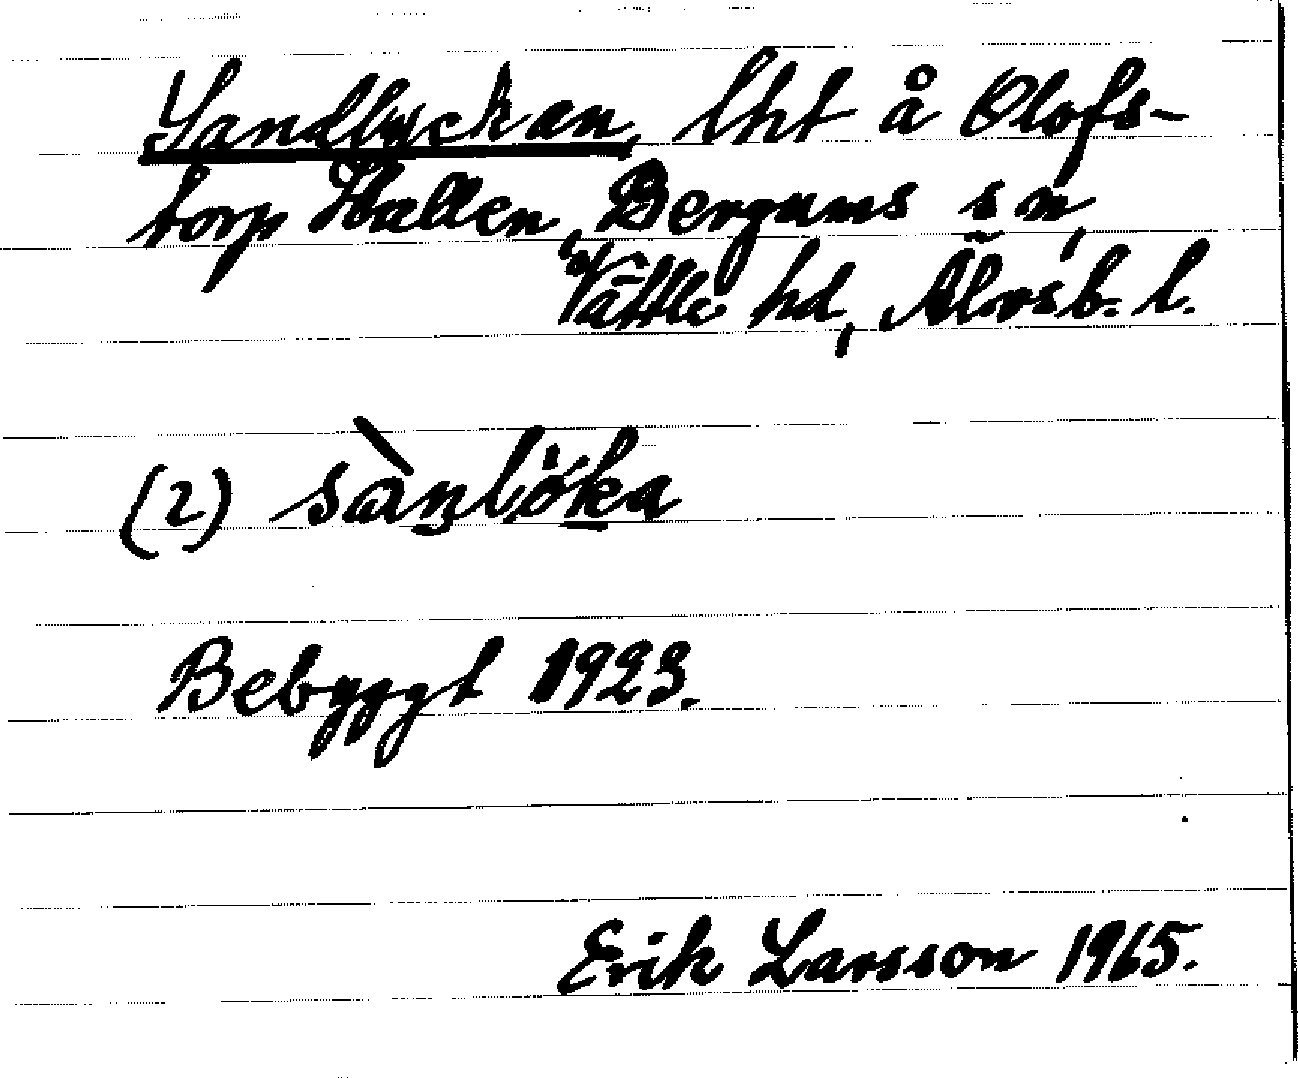 Sandlyckan, lht å Olofs-
torp Hallen, Bergums sn,
Vättle hd, Älvsb. l.
(2) sànlöka
Bebyggt 1923.
Erik Larsson 1965.